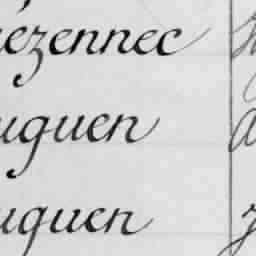 ézennec
uguen
uguen